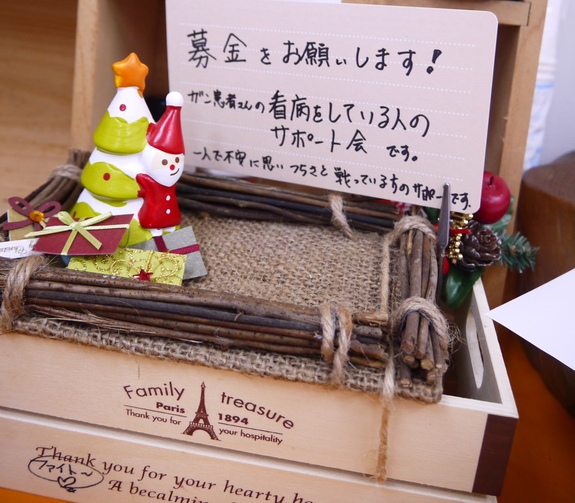 募金をお願いします!
ガン患者さんの看病をしている人の
サポート会 です。
一人で不安に思いつらさと戦っている方のサポーです。
Family treasure
Paris 1894
Thank you for your hospitality
Thank you for your hearty ho
ファイト〜
A becalmin